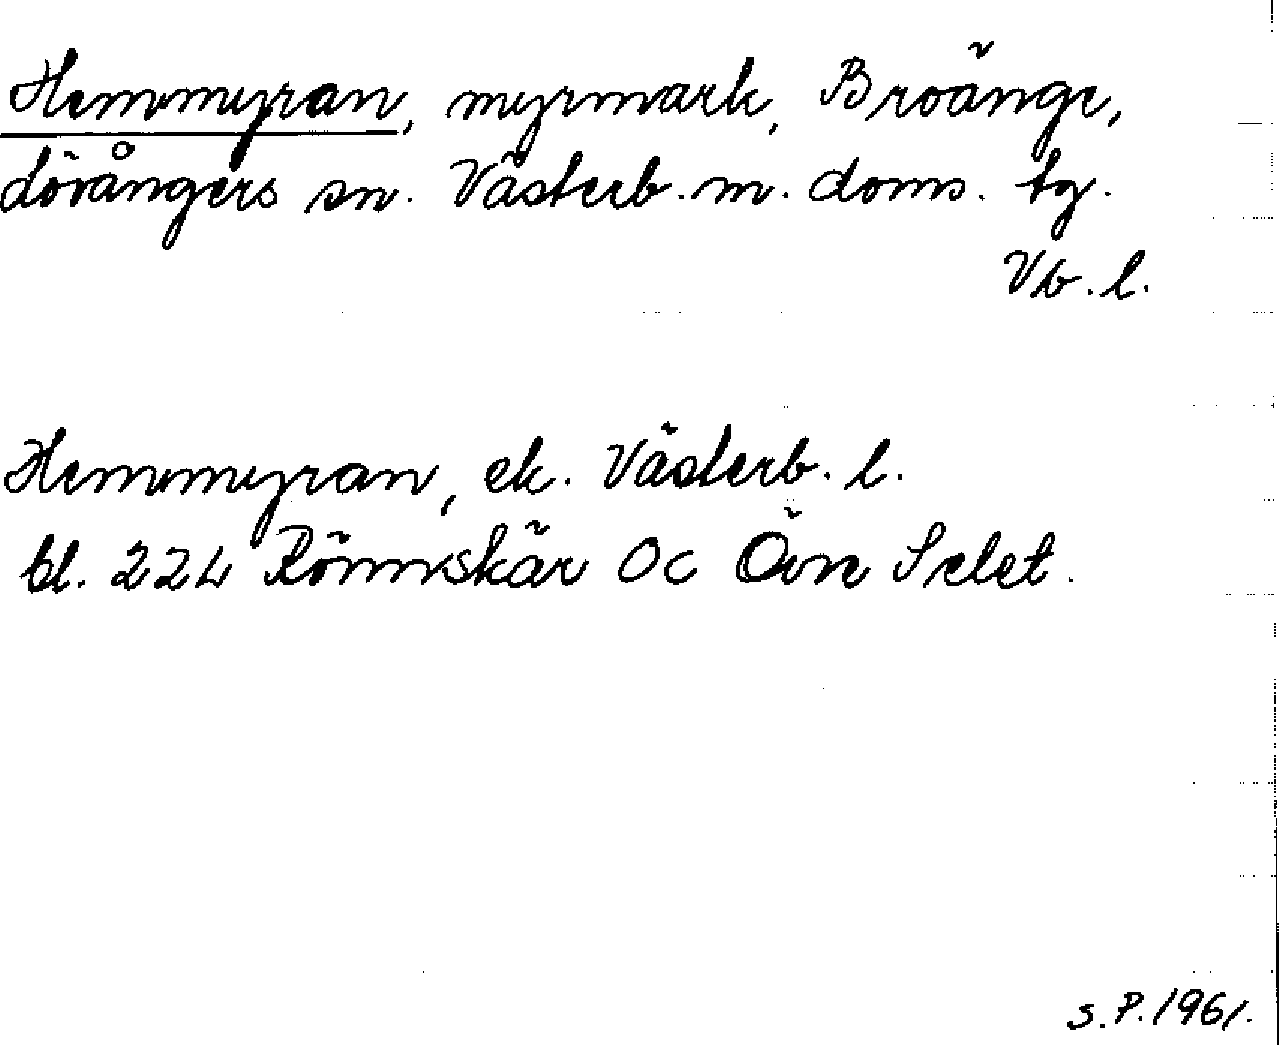 Hemmyran, myrmark, Broänge,
Lövångers sn. Västerb. m. doms. tg.
Vb. l.
Hemmyran, ek. Västerb. l.
bl. 224 Rönnskär Oc Övre Selet.
S.P. 1961.